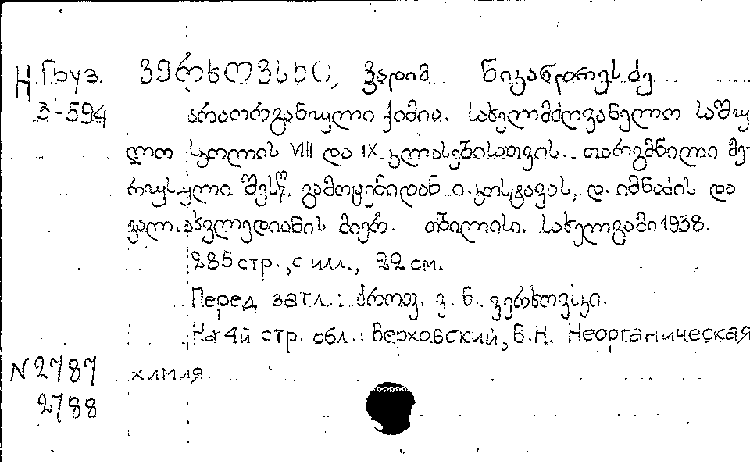 Н.Груз. ვერხოვსკი, ვადიმ ნიკანდრეს ძე
3-594 არაორგანული ქიმია. სახელმძღვანელო საშუ
ლო სკოლის VIII და IX კლასებისათვის. თარგმნილი მე
რუსული შესწ. გამოცემიდან ი. კოსკავას, დ. იმნაძის და
ვალ. ასვლედიანის მიერ. თბილისი. სახელგამი 1938.
285 стр., с илл., 22 см.
Перед загл.: პროფ. ვ. ნ. ვერხოვსკი.
На 4й стр. обл.: Верховский, В.Н. Неорганическая
N 2787 химия
2788